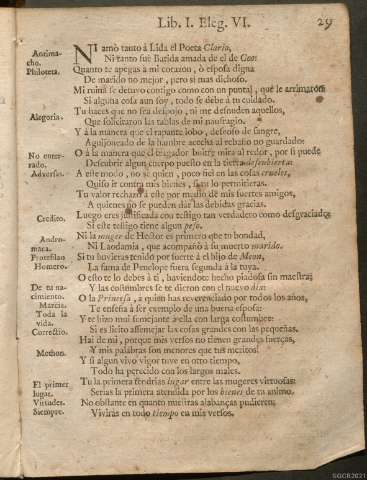 Lib. I. Eleg. VI. 29
Antima-
cho.
Philoteta.
Alegoria.
No enter-
rado.
Adverso.
Credito.
Andro-
maca.
Protesilao
Homero.
De tu na-
cimiento.
Marcia.
Toda la
vida.
Correctio.
Methon.
El primer
lugar.
Virtudes.
Siempre.
NI amò tanto à Lida el Poeta Clario,
Ni tanto fuè Batida amada de el de Coo:
Quanto te apegas à mi corazon, ò esposa digna
De marido no mejor, pero si mas dichoso.
Mi ruina se detuvo contigo como con un puntal, què le arrimaron
Si alguna cosa aun soy, todo se debe à tu cuidado.
Tu haces que no sea despojo, ni me desnuden aquellos,
Que solicitaron las tablas de mi naufragio.
Y à la manera que el rapante lobo, deseoso de sangre,
Aguijoneado de la hambre acecha al rebaño no guardado:
O à la manera que el tragador buitre mira al redor, por si puede
Descubrir algun cuerpo puesto en la tierra descubierta:
A este modo, no sè quien, poco fiel en las cosas crueles,
Quiso ir contra mis bienes, si tu lo permitieras.
Tu valor rechazò à este por medio de mis fuertes amigos,
A quienes no se pueden dar las debidas gracias.
Luego eres justificada con testigo tan verdadero como desgraciado:
Si este testigo tiene algun peso.
Ni la muger de Hector es primero que tu bondad,
Ni Laodamia, que acompañò à su muerto marido.
Si tu huvieras tenido por suerte à el hijo de Meon,
La fama de Penelope fuera segunda à la tuya.
O esto te lo debes à tì, haviendote hecho piadosa sin maestra;
Y las costumbres se te dieron con el nuevo dia:
O la Princesa, à quien has reverenciado por todos los años,
Te enseña à ser exemplo de una buena esposa:
Y te hizo mui semejante à ella con larga costumbre:
Si es licito assemejar las cosas grandes con las pequeñas.
Hai de mi, porque mis versos no tienen grandes fuerzas,
Y mis palabras son menores que tus meritos!
Y si algun vivo vigor tuve en otro tiempo,
Todo ha perecido con los largos males.
Tu la primera tendrias lugar entre las mugeres virtuosas:
Serias la primera atendida por los bienes de tu animo.
No obstante en quanto nuestras alabanças pudieren;
Viviràs en todo tiempo en mis versos.
SGCB2021